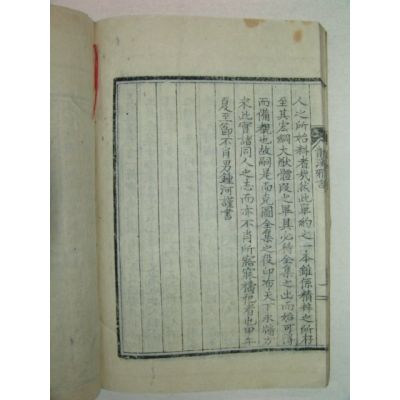 人之所始料者幾於此單約之一本雖係精粹之所存
至其宏綱大猷體段之畢具必待全集之出而始可得
而備觀也故嗣是而克圖全集之役印布天下永方
來此實諸同人之志而亦不肖所寤寐禱祀者也甲午
夏至節不肖男鍾河謹書